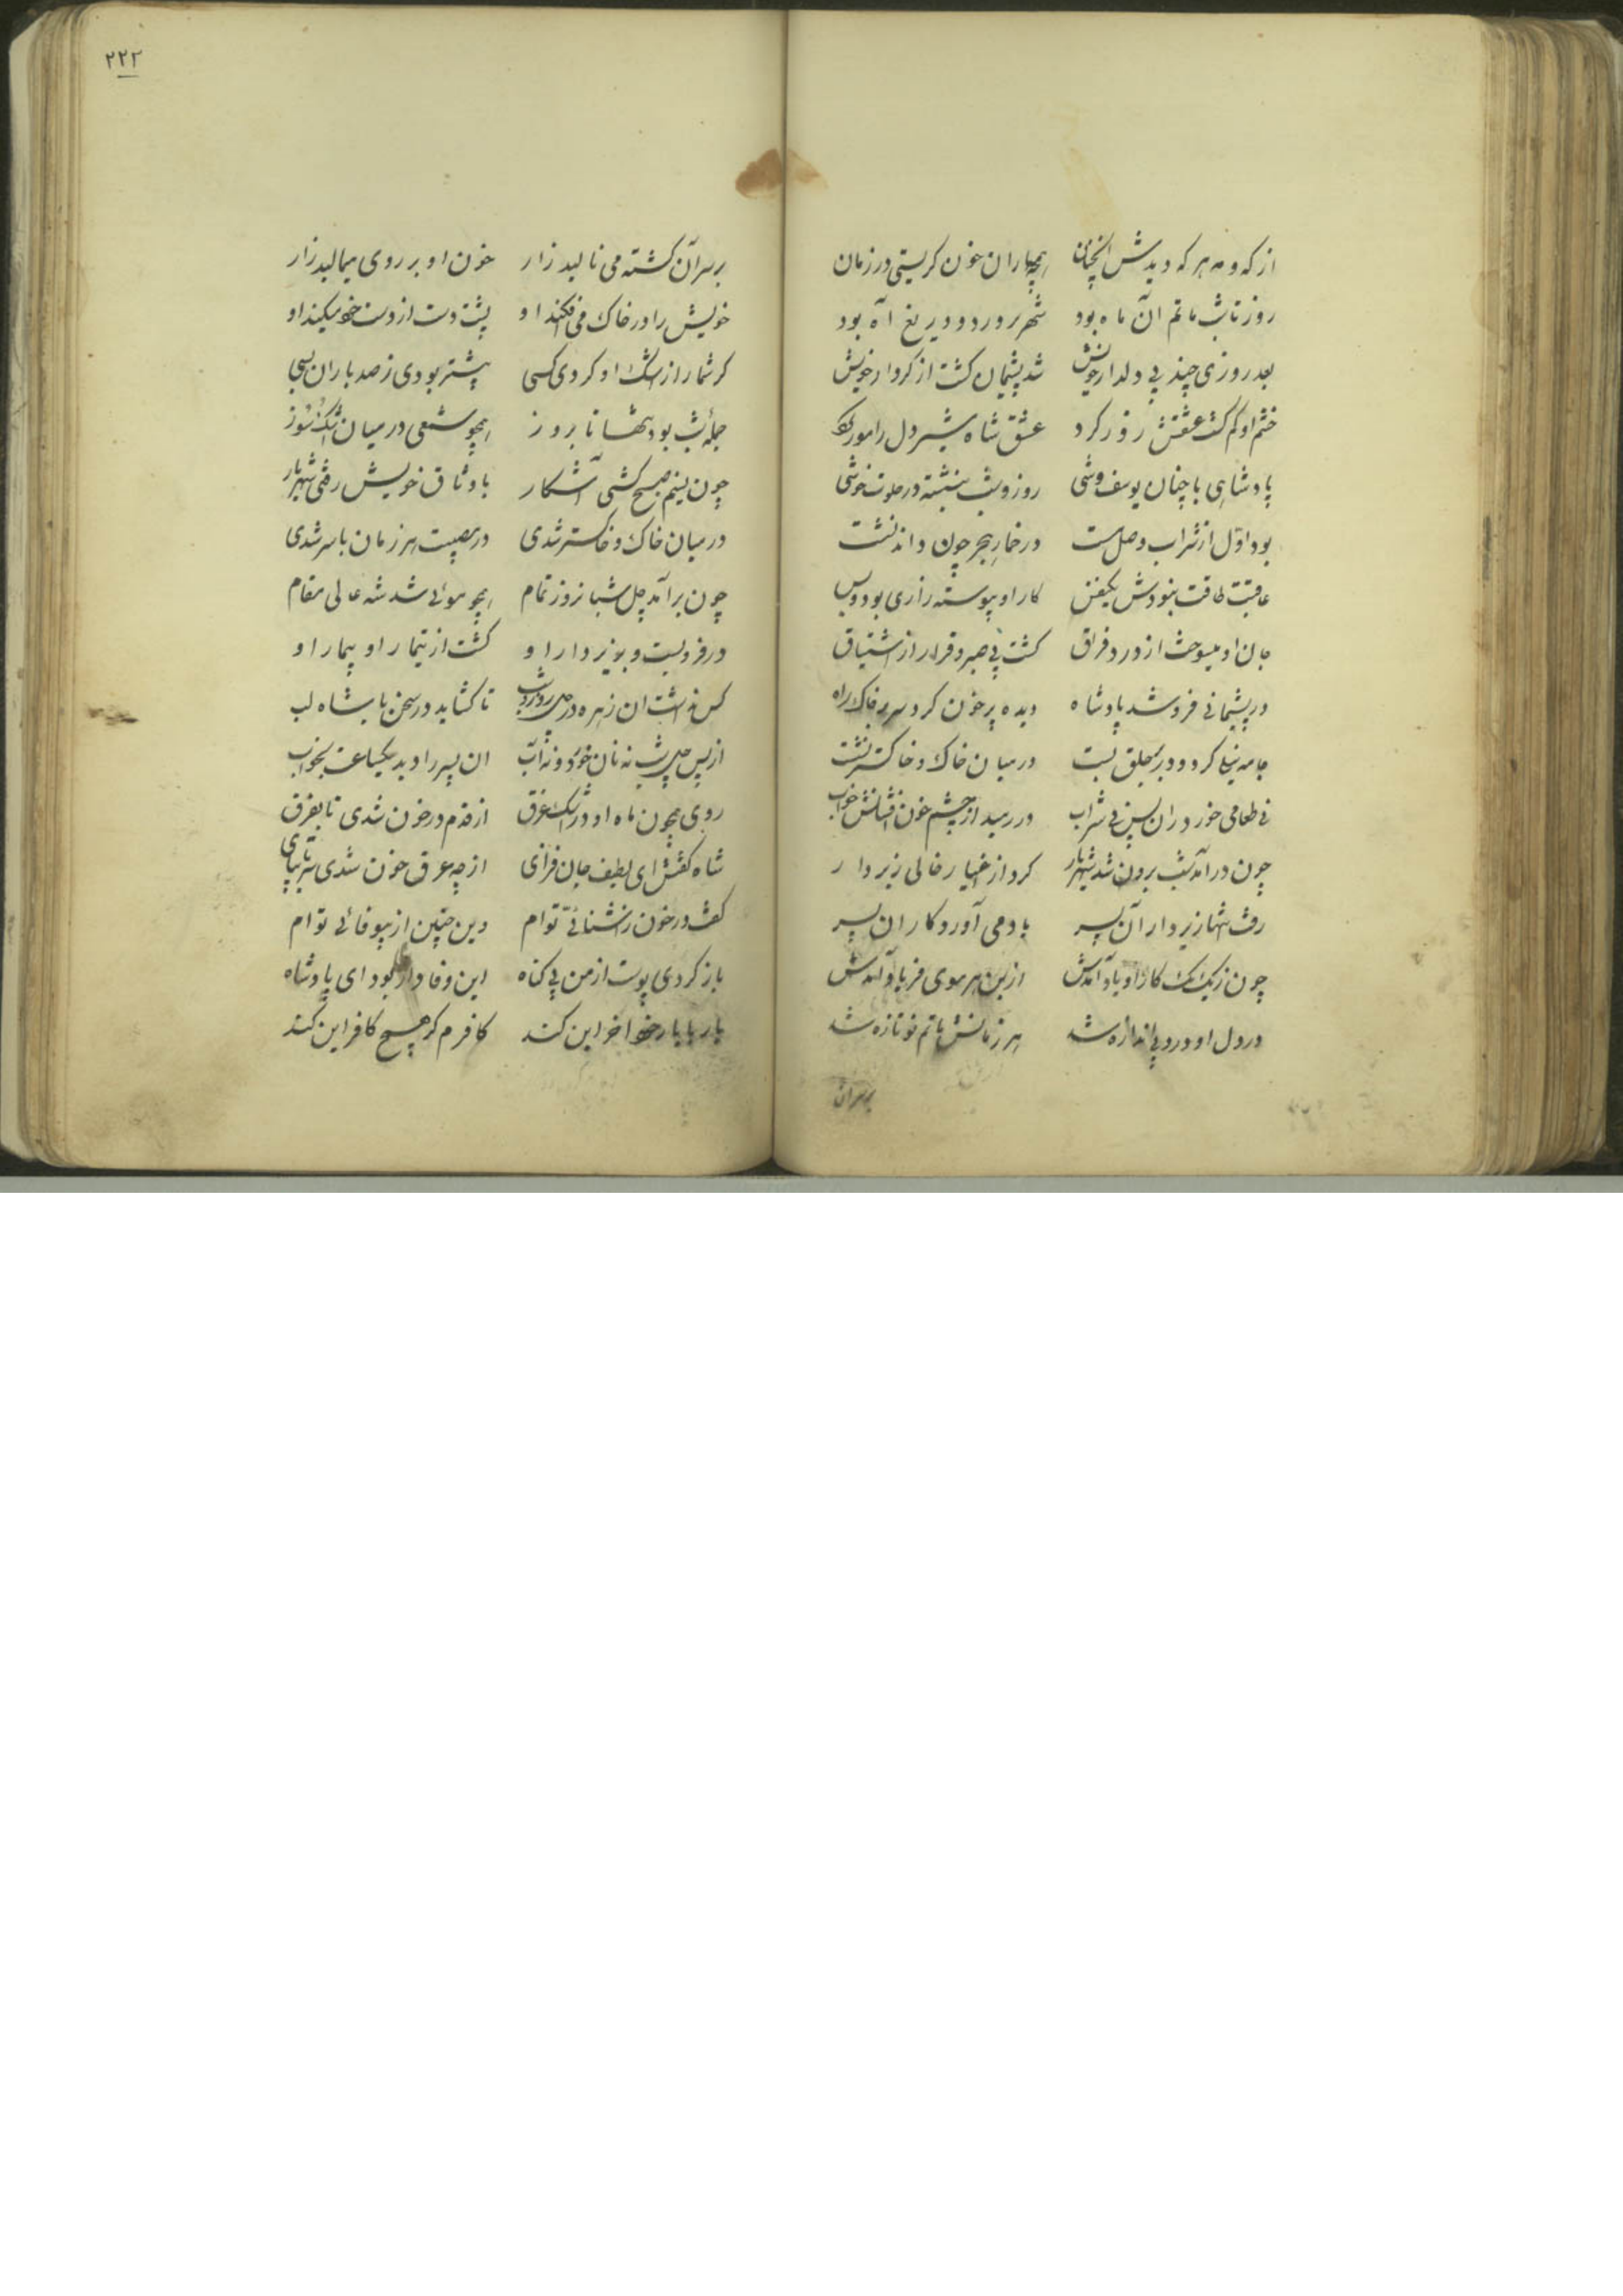 از که و مه هر که دیدش آنچنان همچو باران خون کریستی در زمان
روز تا شب ماتم ان ماه بود شهر پر درد و دریغ آه بود
بعد روزی چند بی دلدار خویش شد پشیمان کشت از کردار خویش
خشم او کم کشت عشقش زور کرد عشق شاه شیردل را مور کرد
پادشاهی با چنان یوسف وشی روز و شب بنشسته در خلوت خوشی
بود اوّل از شراب وصل مست در خمار هجر چون داند نشست
عاقبت طاقت نبودش یکنفس کار او پیوسته زاری بود و بس
جان او میسوخت از درد فراق کشت بی صبر و قرار از اشتیاق
در پشیمانی فرو شد پادشاه دیده پر خون کرد و سر بر خاک راه
جامه نیلی کرد و در بر خلق بست در میان خاک و خاکستر نشست
نی طعامی خورد از ان پس نی شراب در رمید از چشم خون افشانش خواب
چون در آمد شب برون شد شهریار کرد از اغیار خالی زیر دار
رفت تنها زیر دار آن پسر یاد می آورد کار ان پسر
چون ز یک یک کار او یاد آمدش از بن هر موی فریاد آمدش
در دل او درد بی اندازه شد هر زمانش ماتم نو تازه شد
بر سر ان
۲۲۲
بر سر آن کشته می نالید زار خون او بر روی میمالید زار
خویش را در خاک می افکند او پشت دست از دست خود میکند او
کر شمار از اشک او کردی کسی بیشتر بودی ز صد باران بسی
جملهٔ شب بود تنها تا بروز همچو شمعی در میان اشک و سوز
چون نسیم صبح کشتی آشکار با وثاق خویش رفتی شهریار
در میان خاک و خاکستر شدی در مصیبت هر زمان با سر شدی
چون برآمد چل شبانروز تمام همچو موئی شد شه عالی مقام
در فرو بست و بزیر دار او کشت از تیمار او بیمار او
کس نداشت ان زهره در چل روز و شب تا کشاید در سخن با شاه لب
از پس چل شب نه نان خورد و نه آب ان پسر را دید یکساعت بخواب
روی همچون ماه او در اشک غرق از قدم در خون شدی تا بفرق
شاه کفتش ای لطیف جان فزای از چه غرق خون شدی سر تا بپای
کفت در خون ز آشنائیّ توام وین چنین از بیوفائی توام
باز کردی پوست از من بی کناه این وفا داری بود ای پادشاه
یار با یار خود اخر این کند کافرم کر هیچ کافر این کند